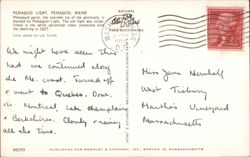 PEMAQUID LIGHT, PEMAQUID, MAINE.
Pemaquid point, the extreme tip of the peninsula, is
marked by Pemaquid Light. The old light was estab-
lished in the white pyramidal tower connected with
the dwelling in 1827.
Color photo by Lee Smith
We might have seen this
had we continued along
the Me. coast. Turned off
& went to Quebec. Down
Montreal, Lake Champlain
& Berkshires. Cloudy & rainy
all the time.
NATURAL
Miss Jane Newhall
West Tisbury
Martha's Vineyard
Massachusetts
PUBLISHED FOR BROMLEY & COMPANY, INC., BOSTON 10, MASSACHUSETTS